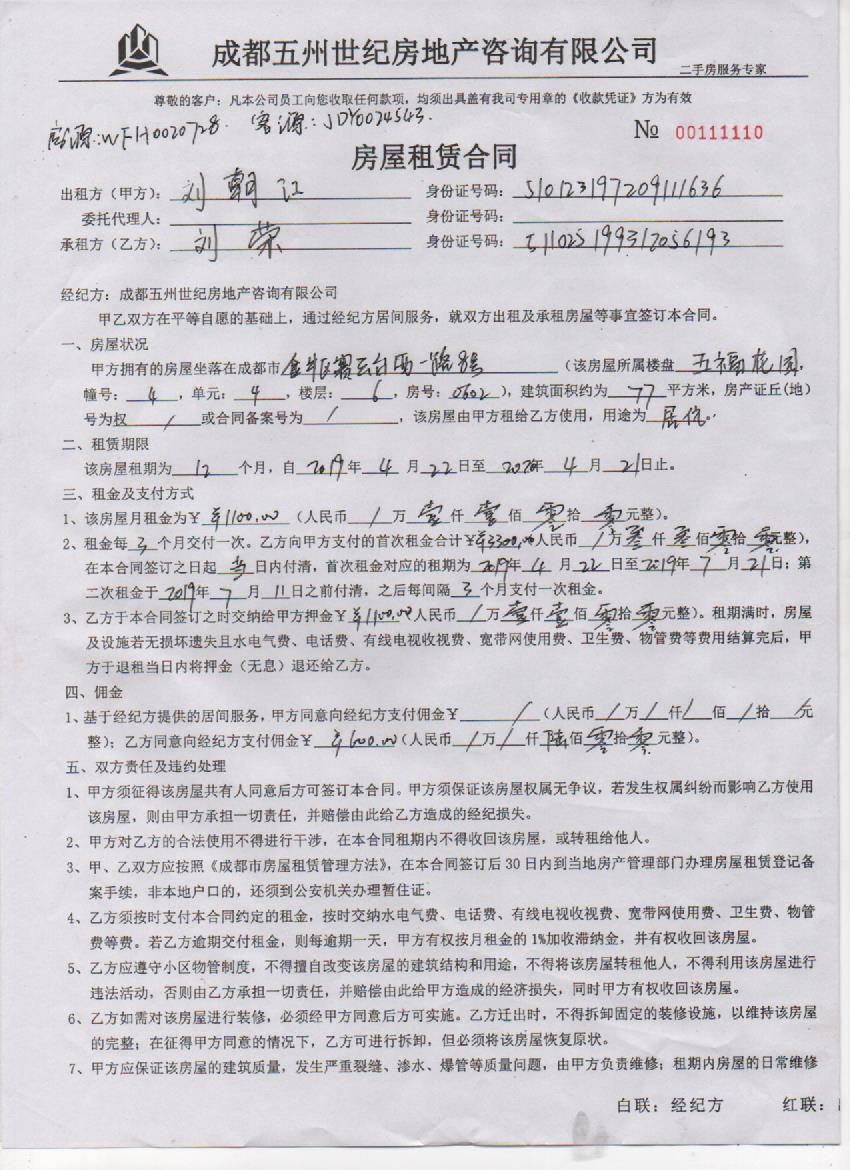 成都五州世纪房地产咨询有限公司
二手房服务专家
尊敬的客户：凡本公司员工向您收取任何款项，均须出具盖有我司专用章的《收款凭证》方为有效
房源：WFH0020728. 客源：JDY0024543.
№ 00111110
房屋租赁合同
出租方（甲方）： 刘朝江 身份证号码：510123197209111636
委托代理人： 身份证号码：
承租方（乙方）： 刘荣 身份证号码：511025199312056193
经纪方：成都五州世纪房地产咨询有限公司
甲乙双方在平等自愿的基础上，通过经纪方居间服务，就双方出租及承租房屋等事宜签订本合同。
一、房屋状况
甲方拥有的房屋坐落在成都市金牛区 西一路8号（该房屋所属楼盘 五福花园，
幢号： 4 ，单元： 4 ，楼层： 6 ，房号：0602 ），建筑面积约为 77 平方米，房产证丘(地）
号为权 / 或合同备案号为 / ，该房屋由甲方租给乙方使用，用途为 居住.
二、租赁期限
该房屋租期为 12 个月，自 2019年 4 月 22日至 2020年 4 月 21日止。
三、租金及支付方式
1、该房屋月租金为￥ ￥1100.00 （人民币 / 万 壹 仟 壹 佰 零 拾 零 元整）。
2、租金每 3 个月交付一次。乙方向甲方支付的首次租金合计￥￥3300.00人民币 / 万 叁 仟 叁 佰零拾零元整），
在本合同签订之日起 当 日内付清，首次租金对应的租期为 2019年 4 月 22 日至2019年 7 月 21日；第
二次租金于 2019年 7 月 11日之前付清，之后每间隔 3 个月支付一次租金。
3、乙方于本合同签订之时交纳给甲方押金￥ ￥1100.00人民币 / 万壹仟壹佰 零拾零元整）。租期满时，房屋
及设施若无损坏遗失且水电气费、电话费、有线电视收视费、宽带网使用费、卫生费、物管费等费用结算完后，甲
方于退租当日内将押金（无息）退还给乙方。
四、佣金
1、基于经纪方提供的居间服务，甲方同意向经纪方支付佣金￥ / （人民币 / 万 / 仟 / 佰 / 拾 / 元
整）；乙方同意向经纪方支付佣金￥ ￥600.00（人民币 / 万 / 仟 陆佰 零拾零元整）。
五、双方责任及违约处理
1、甲方须征得该房屋共有人同意后方可签订本合同。甲方须保证该房屋权属无争议，若发生权属纠纷而影响乙方使用
该房屋，则由甲方承担一切责任，并赔偿由此给乙方造成的经纪损失。
2、甲方对乙方的合法使用不得进行干涉，在本合同租期内不得收回该房屋，或转租给他人。
3、甲、乙双方应按照《成都市房屋租赁管理方法》，在本合同签订后 30 日内到当地房产管理部门办理房屋租赁登记备
案手续，非本地户口的，还须到公安机关办理暂住证。
4、乙方须按时支付本合同约定的租金，按时交纳水电气费、电话费、有线电视收视费、宽带网使用费、卫生费、物管
费等费。若乙方逾期交付租金，则每逾期一天，甲方有权按月租金的 1%加收滞纳金，并有权收回该房屋。
5、乙方应遵守小区物管制度，不得擅自改变该房屋的建筑结构和用途，不得将该房屋转租他人，不得利用该房屋进行
违法活动，否则由乙方承担一切责任，并赔偿由此给甲方造成的经济损失，同时甲方有权收回该房屋。
6、乙方如需对该房屋进行装修，必须经甲方同意后方可实施。乙方迁出时，不得拆卸固定的装修设施，以维持该房屋
的完整；在征得甲方同意的情况下，乙方可进行拆卸，但必须将该房屋恢复原状。
7、甲方应保证该房屋的建筑质量，发生严重裂缝、渗水、爆管等质量问题，由甲方负责维修；租期内房屋的日常维修
白联：经纪方 红联：